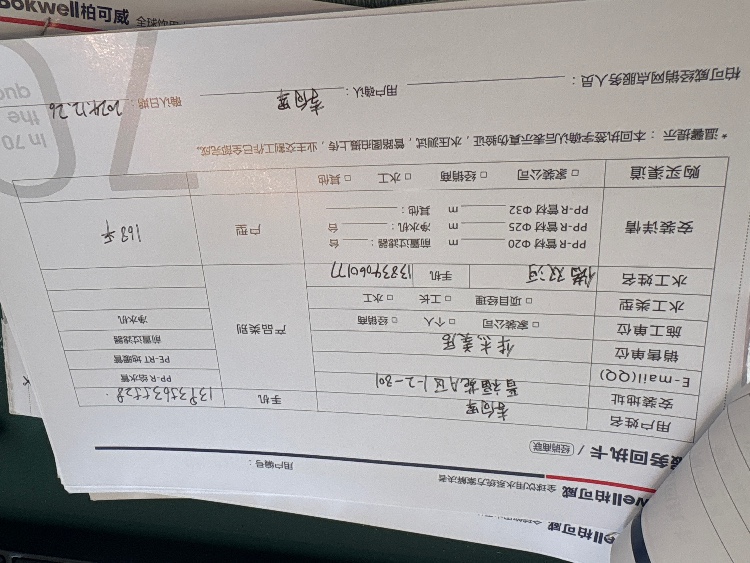 ell柏可威
well柏可威 全球饮用水系统方案解决者
服务回执卡 / (经销商联)
用户编号：
用户姓名
手机 13835635528
安装地址 晋福苑A区1-2-301
E-mail(QQ)
销售单位 佳杰美居
施工单位 □ 家装公司 □ 个人 □ 经销商
水工类型 □ 项目经理 □ 工长 □ 水工
水工姓名 手机 13834060177
产品类别
PP-R 给水管
PE-RT 地暖管
前置过滤器
净水机
安装详情
PP-R 管材 Φ20 m 前置过滤器： 台
PP-R 管材 Φ25 m 净水机： 台
PP-R 管材 Φ32 m 其他：
户型 168平
购买渠道 □ 家装公司 □ 经销商 □ 水工 □ 其他
*温馨提示：本回执签字确认后表示真伪验证，水压测试，管路图拍摄上传，业主交割工作已全部完成。
柏可威经销网点服务人员：
用户确认：
确认日期：2024.12.26
In 70
the
quo
Bokwell柏可威